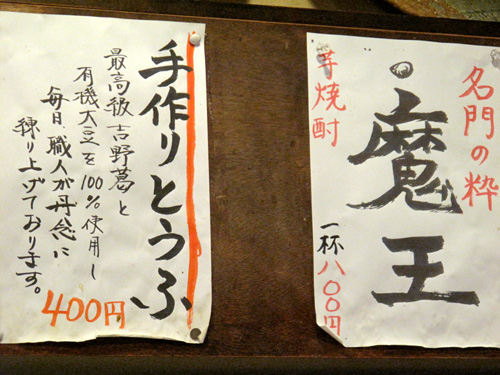 名門の粋
魔王
芋焼酎
一杯八〇〇円
手作りとうふ
最高級吉野葛と
有機大豆を100%使用し
毎日職人が丹念に
練り上げております。
400円